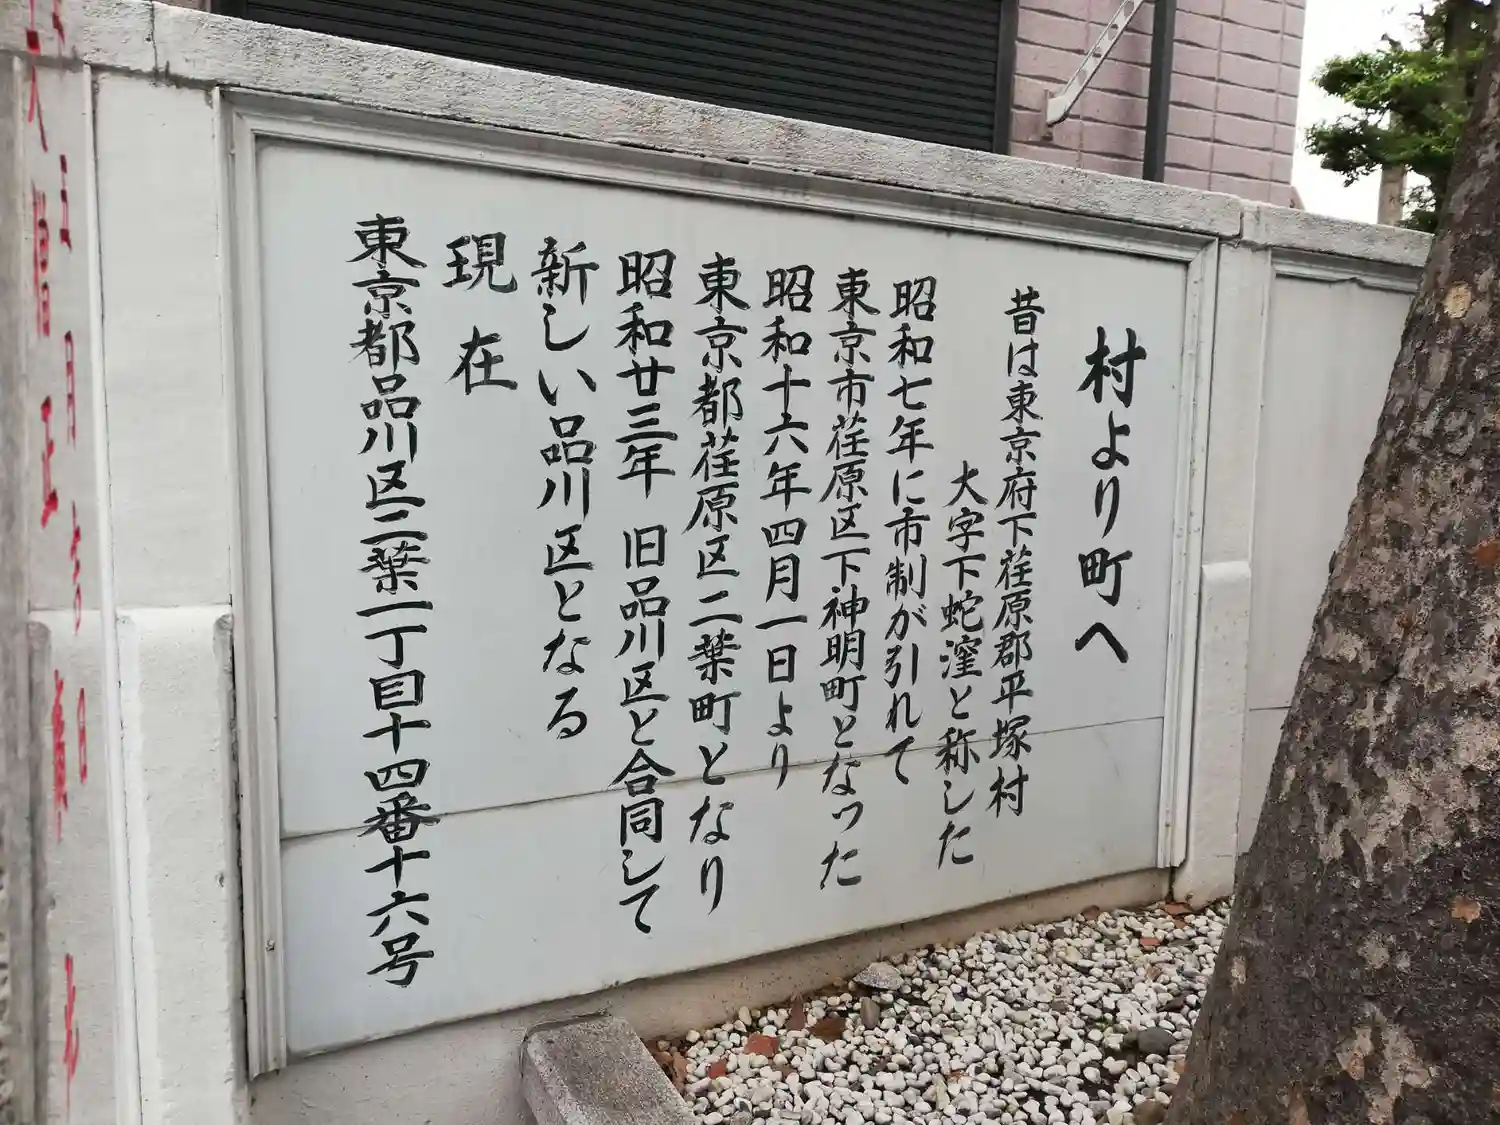 村より町へ
昔は東京府下荏原郡平塚村
大字下蛇窪と称した
昭和七年に市制が引れて
東京市荏原区下神明町となった
昭和十六年四月一日より
東京都荏原区二葉町となり
昭和廿三年 旧品川区と合同して
新しい品川区となる
現在
東京都品川区二葉一丁目十四番十六号